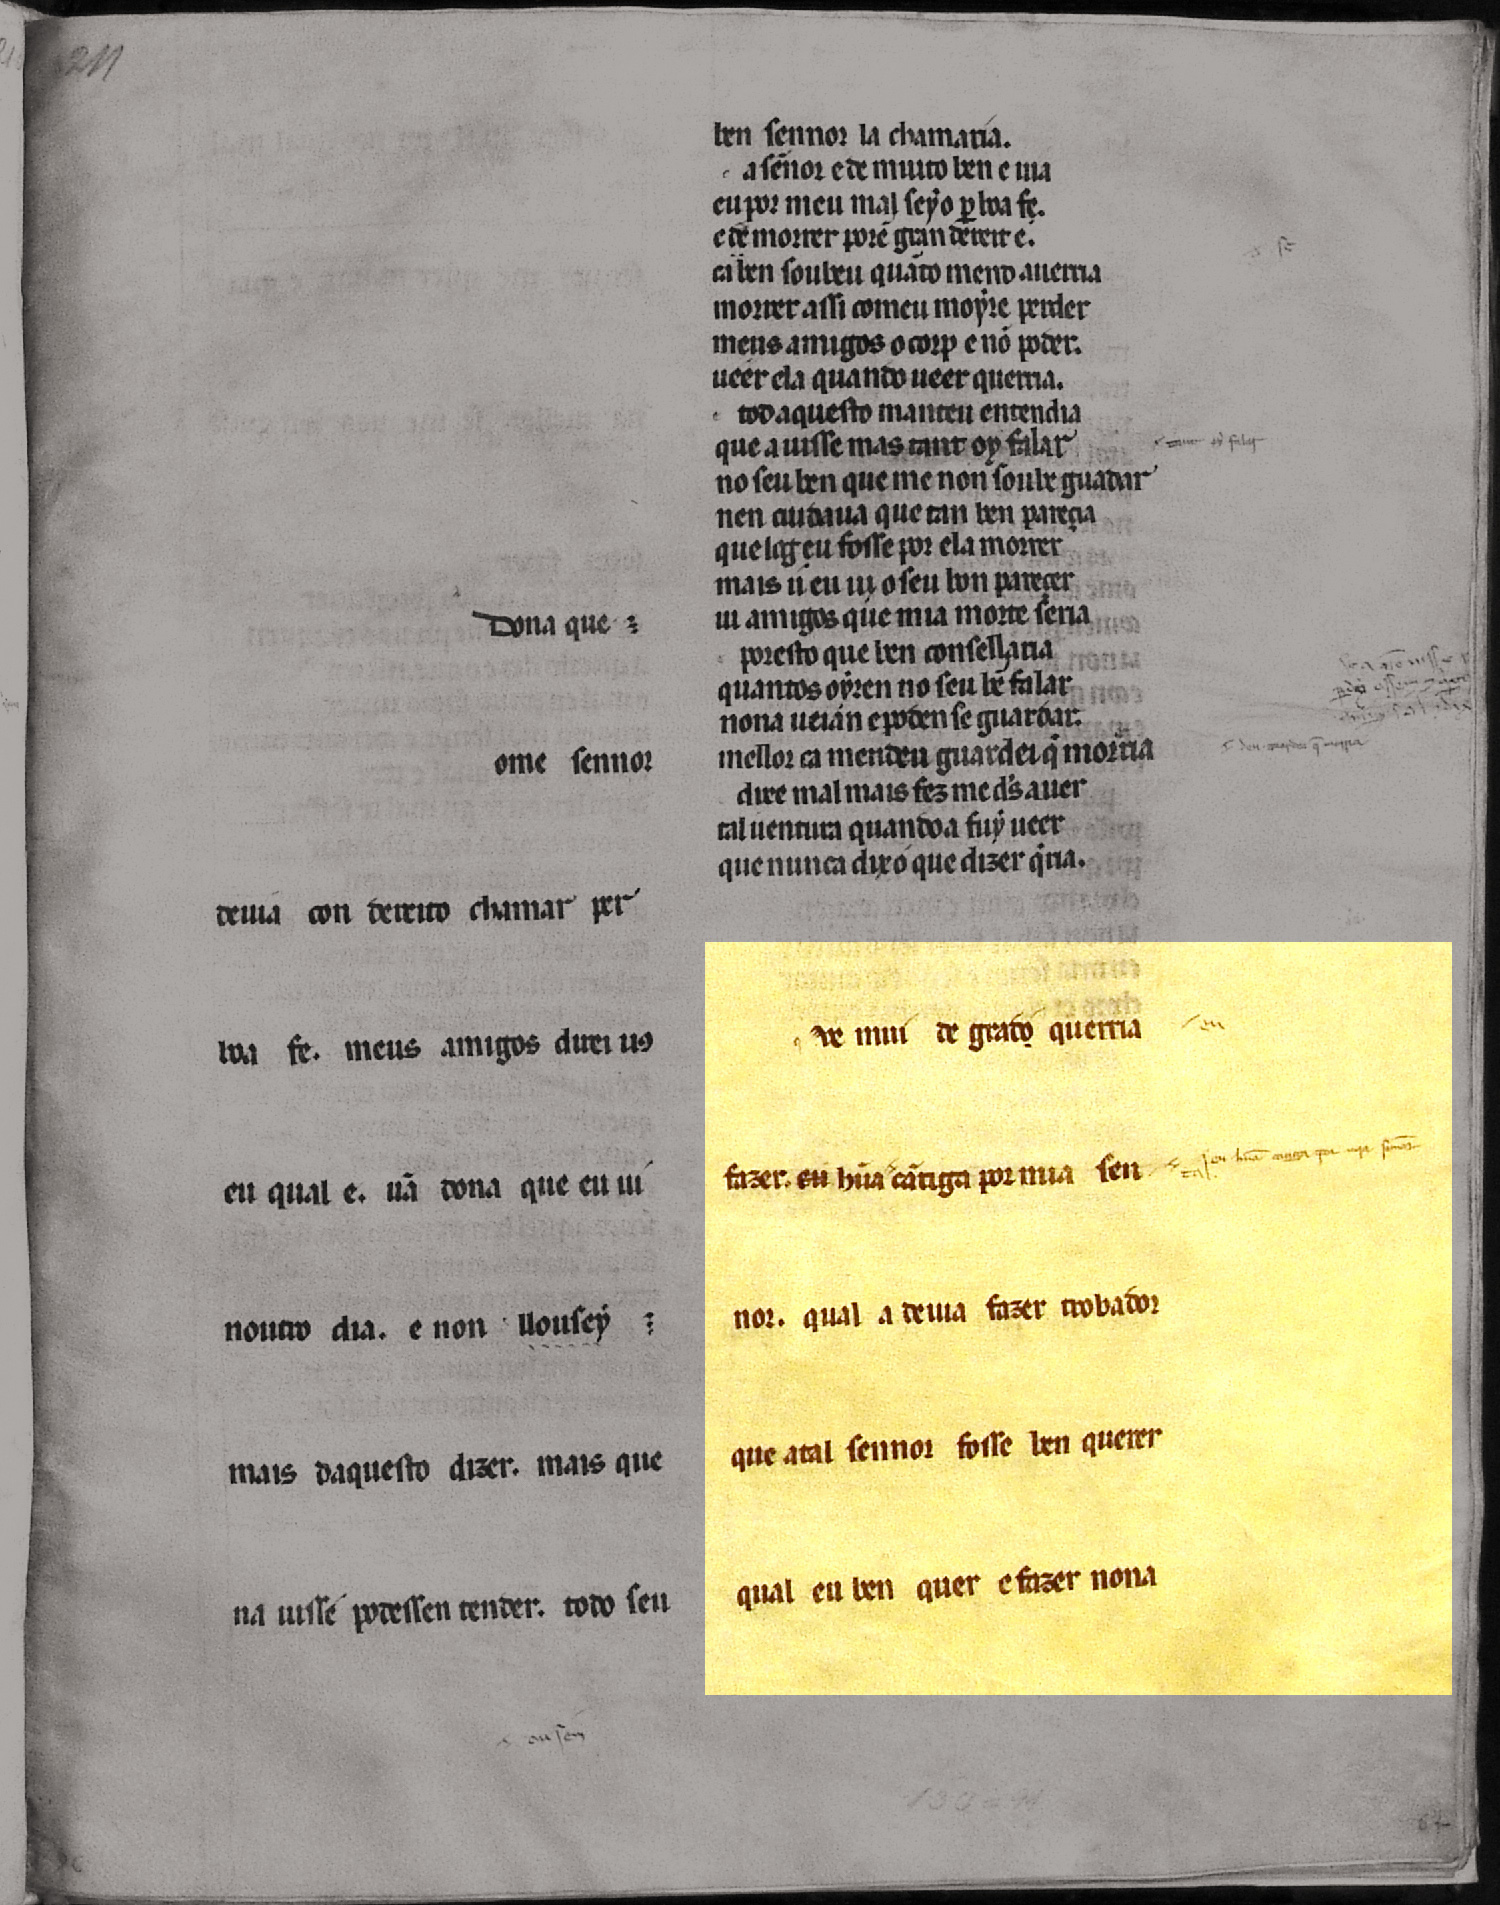 211
Dona que
ome sennor
deuia con dereito chamar per
boa fe. meus amigos direi uꝯ
eu qual e. uã dona que eu ui
noutro dia. e non llousey
mais daquesto dizer. mais que
na uisse podessen tender. todo seu
ousen
ben sennor la chamaria.
a señor e de muito ben e uia
eu por meu mal seyo ꝑ boa fe.
e de morrer porẽ gran dereit e.
ca ben soubeu quãto mend auerria
morrer assi comeu moyre perder
meus amigos o corp e nõ poder.
ueer ela quando ueer querria.
tod aquesto manteu entendia
que auisse mas tant oy falar
no seu ben que me non soube guadar
nen cuidaua que tan ben pareçia
que log eu fosse por ela morrer
mais u eu ui o seu bon pareçer
ui amigos que mia morte seria
poresto que ben consellaria
quantos oyren no seu bẽ falar
nona ueian e poden se guardar.
mellor ca mendeu guardei q̃ morria
dixe mal mais fez me ds auer
tal uentura quando a fuy ueer
que nunca dixo que dizer q̃ria.
de mui de grado querria
eu
fazer. eu hũa cãtiga por mia sen
nor. qual a deuia fazer trobador
que atal sennor fosse ben querer
qual eu ben quer e fazer nona